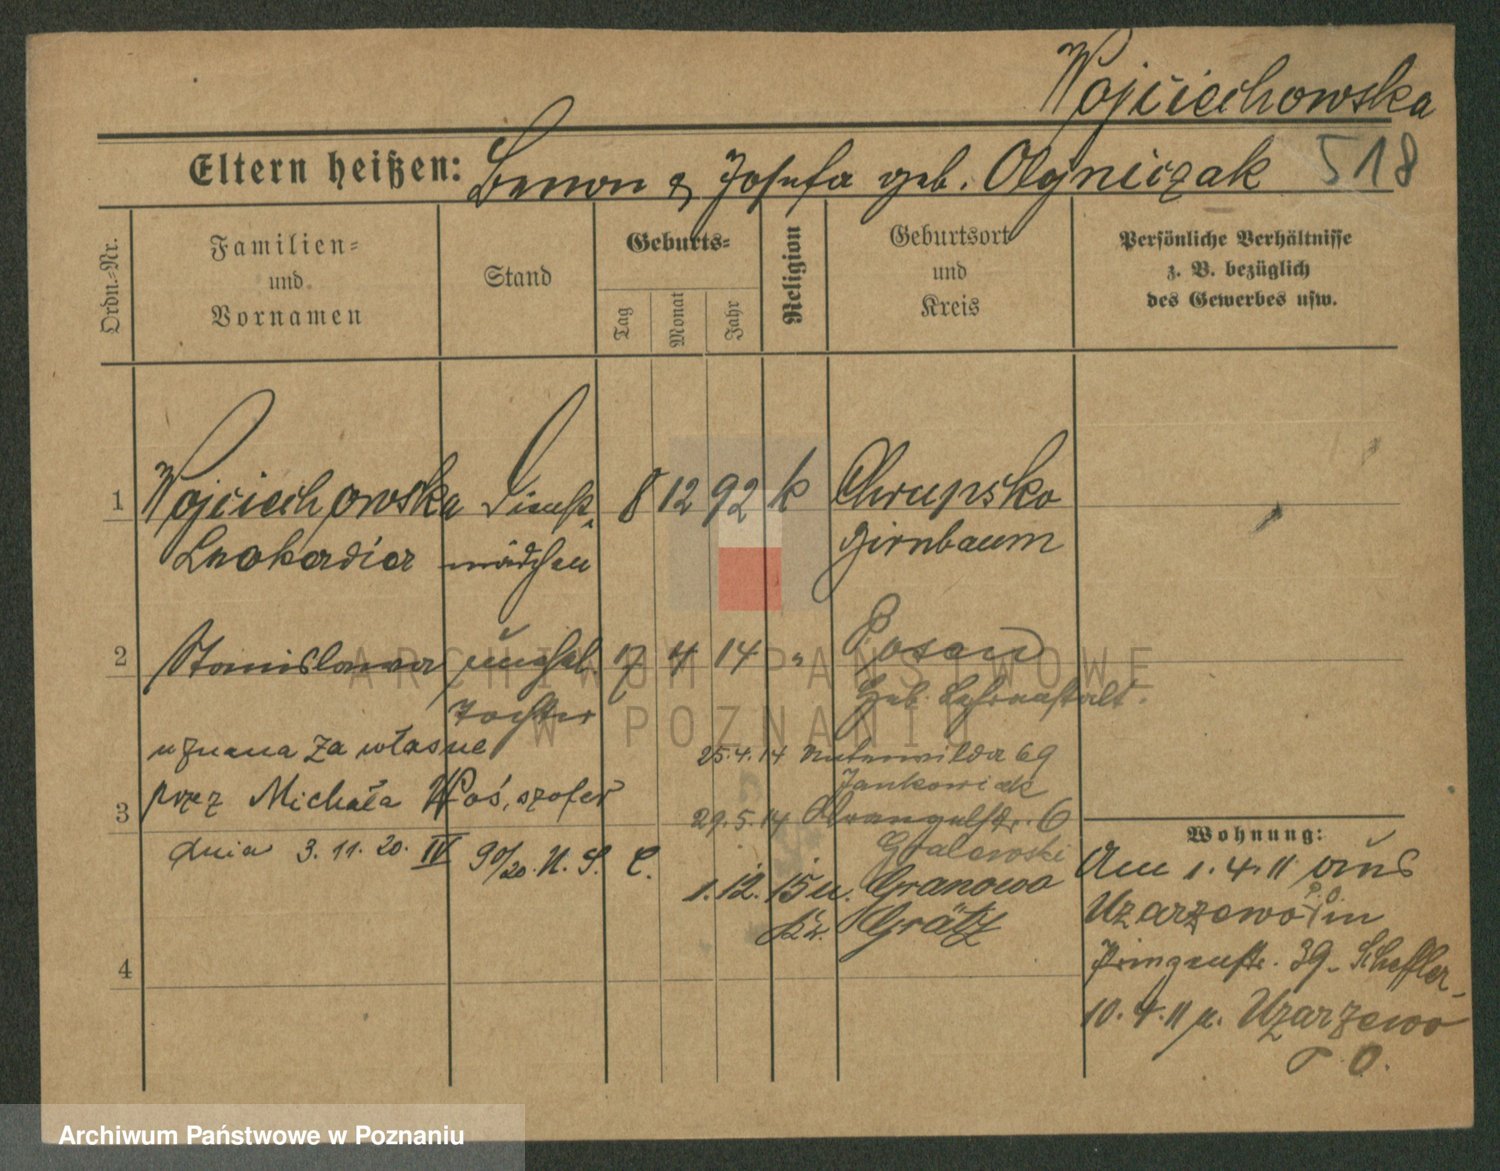 Wojciechowska
518
Eltern heißen: Zenon & Josefa geb. Olejniczak
Ordn.-Nr.
Familien- und Vornamen
Stand
Geburts-
Tag
Monat
Jahr
Religion
Geburtsort und Kreis
Persönliche Verhältnisse
z. B. bezüglich
des Gewerbes usw.
1 Wojciechowska Dienst- 8 12 92 k Chrupsko
Leokardia mädchen Birnbaum
2 Stanislawa unehel. 17 4 14 " Posen
Tochter Geb. Lehranstalt.
uznana za własne
przez Michała Woś, szofer
3
dnia 3.11.20. IV 90/20. U. S. C.
25.4.14 Unterwilda 69
Jankowiak
29.5.14 6
Gralewski
1.12.15 u. Granowo
Kr. Grätz
4
Wohnung:
Am 1.4.11 aus
Uzarzewo P. O. in
Prinzenstr. 39 - Scheffler -
10.4.11 n. Uzarzewo
P. O.
ARCHIWUM PAŃSTWOWE
W POZNANIU
Archiwum Państwowe w Poznaniu